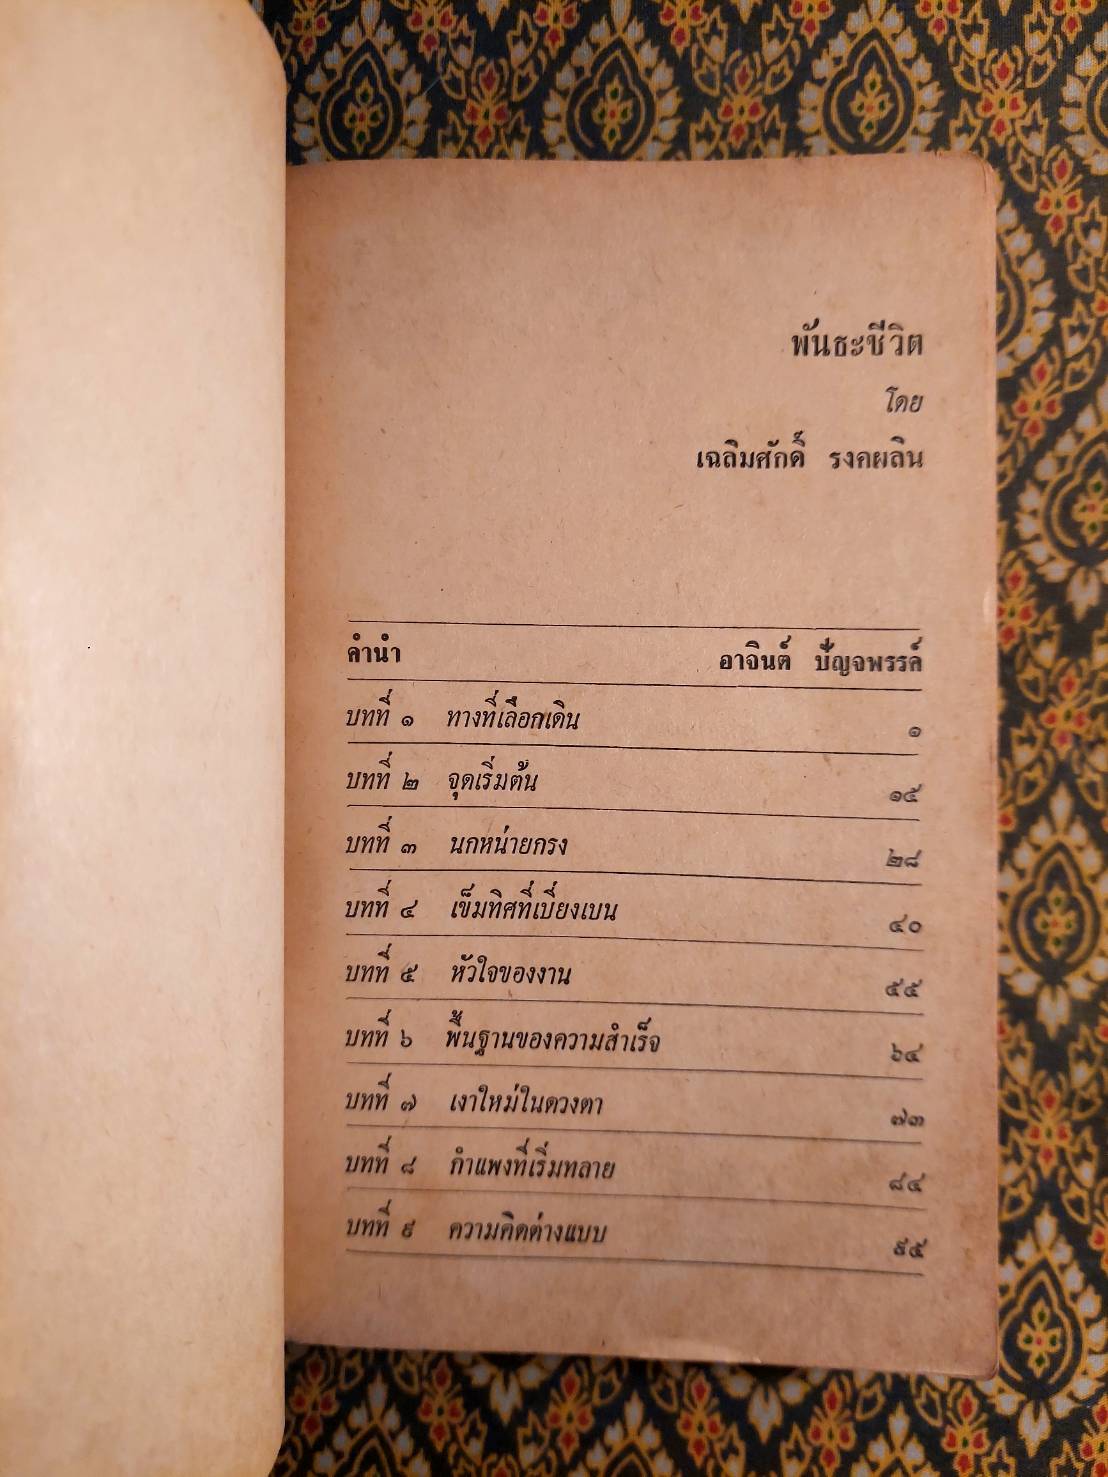 พันธะชีวิต
โดย
เฉลิมศักดิ์ รงคผลิน
คำนำ อาจินต์ ปัญจพรรค์
บทที่ ๑ ทางที่เลือกเดิน ๑
บทที่ ๒ จุดเริ่มต้น ๑๕
บทที่ ๓ นกหน่ายกรง ๒๘
บทที่ ๔ เข็มทิศที่เบี่ยงเบน ๔๐
บทที่ ๕ หัวใจของงาน ๕๕
บทที่ ๖ พื้นฐานของความสำเร็จ ๖๔
บทที่ ๗ เงาใหม่ในดวงตา ๗๓
บทที่ ๘ กำแพงที่เริ่มทลาย ๘๔
บทที่ ๙ ความคิดต่างแบบ ๙๕